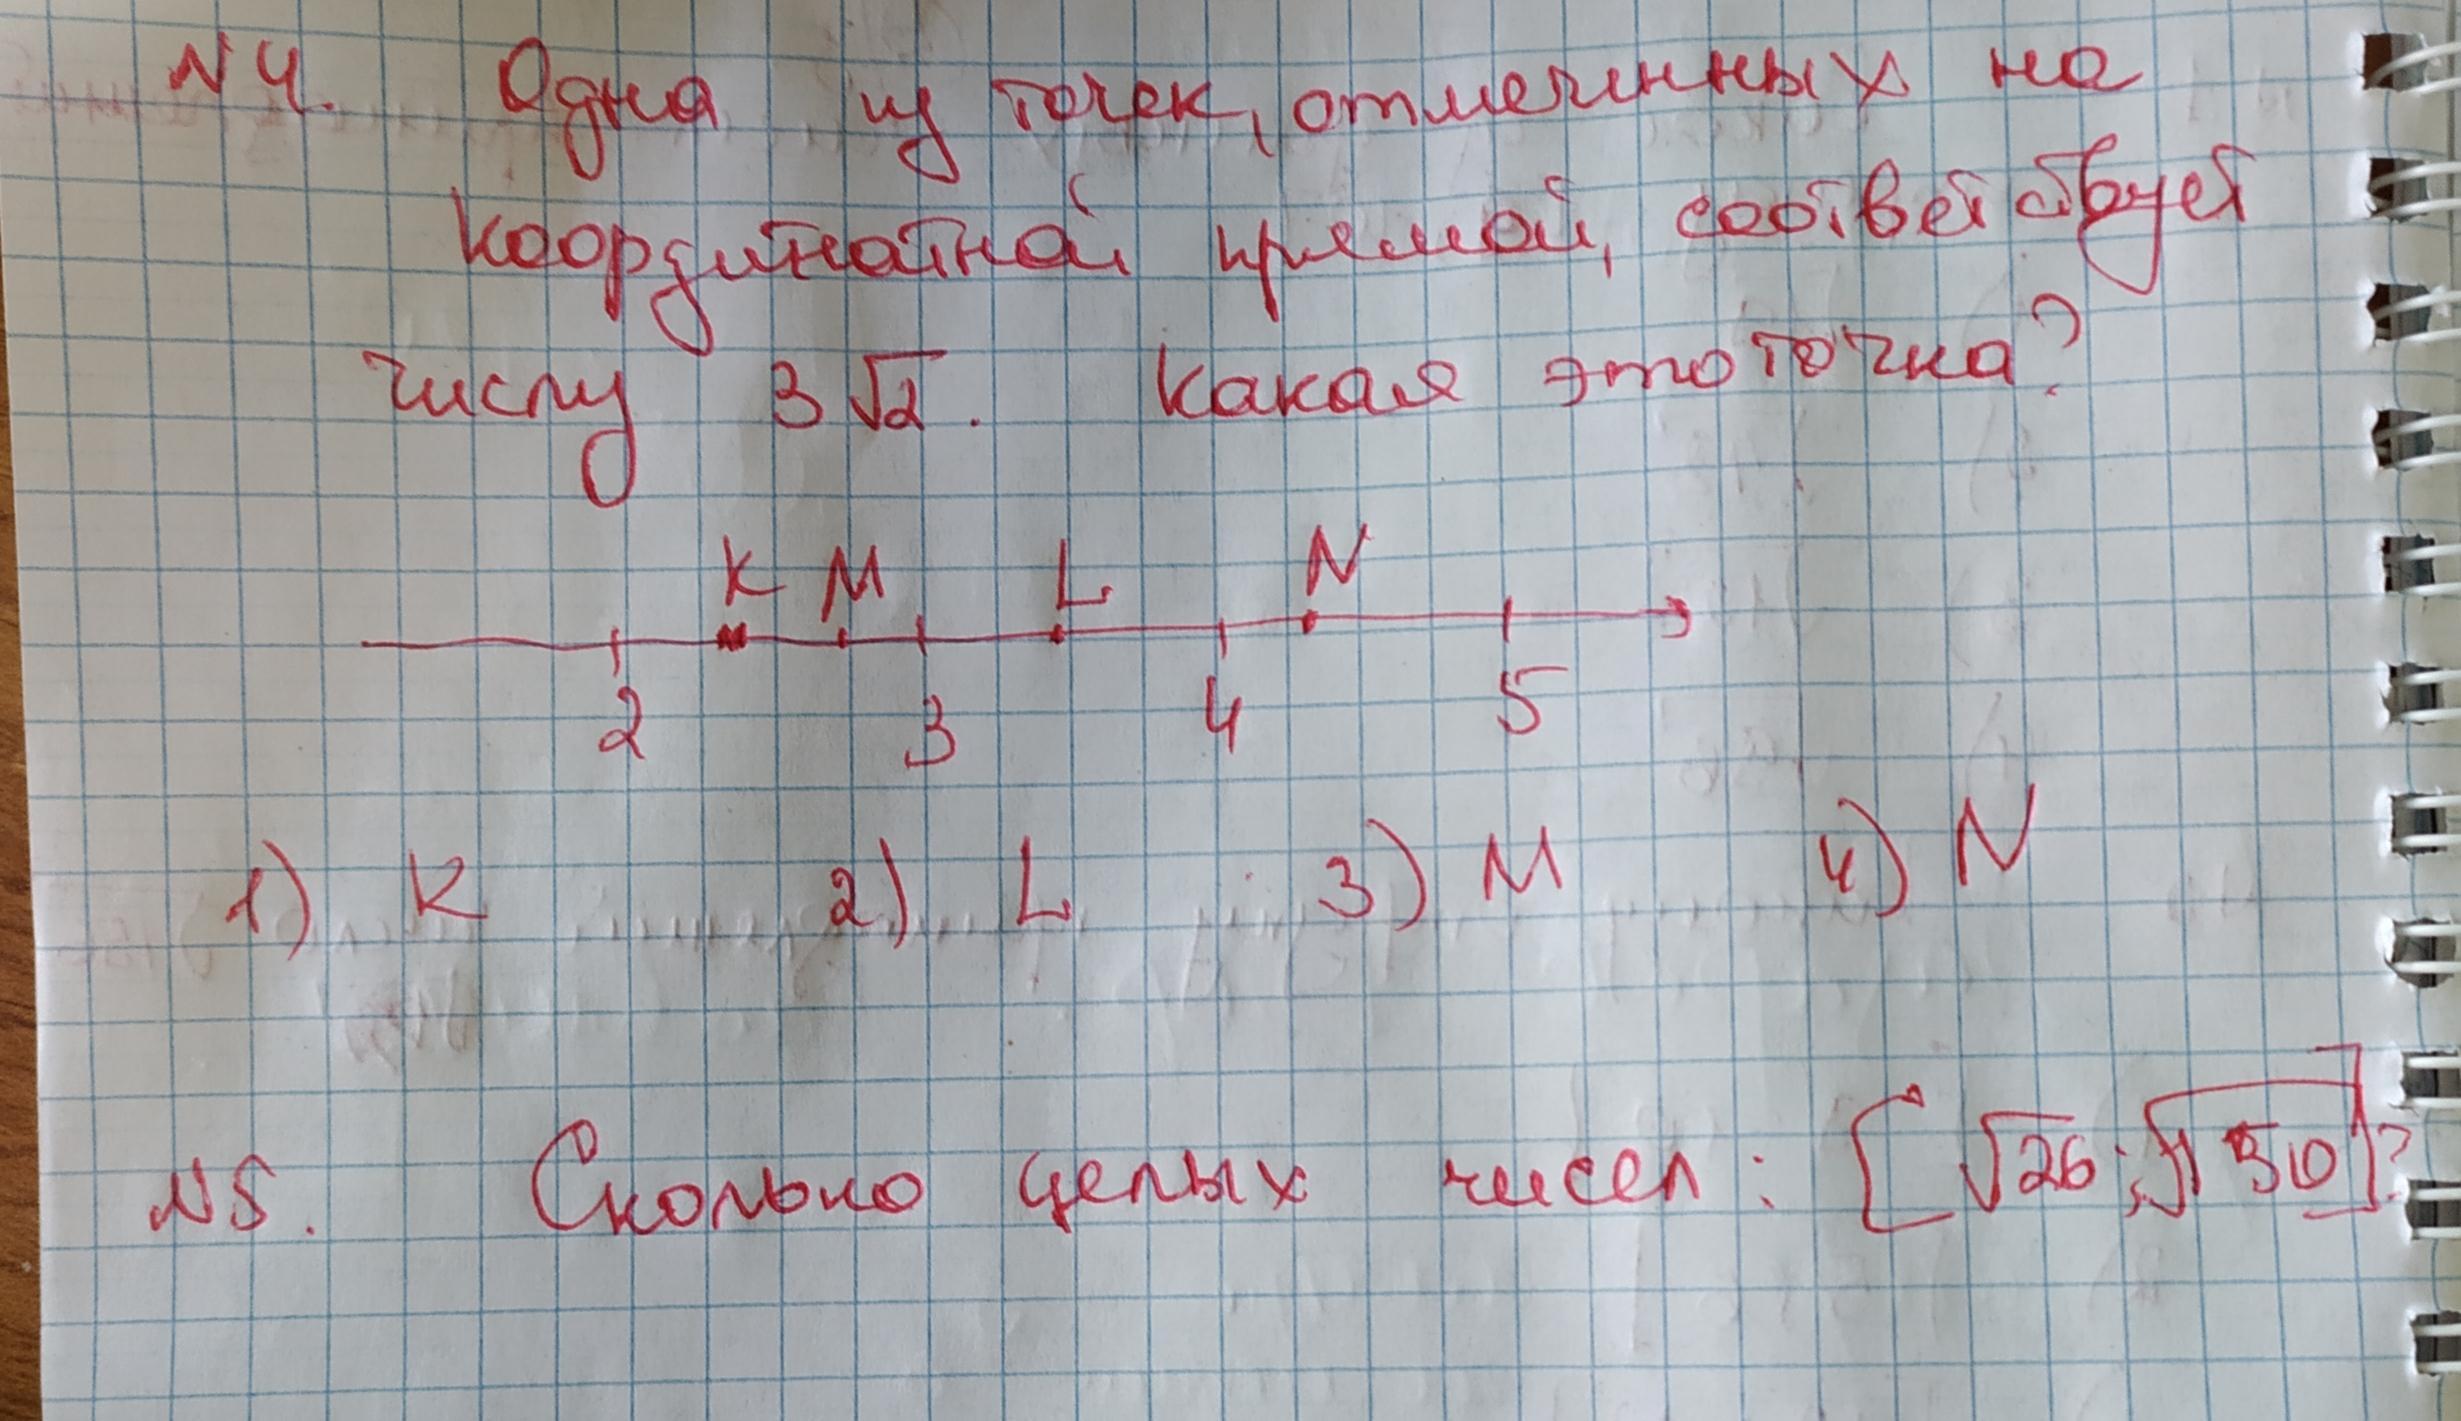 N4. Одна из точек, отмеченных на
координатной прямой, соответствует
числу 3√2. Какая это точка?
K M L N
2 3 4 5
1) K 2) L 3) M 4) N
N5. Сколько целых чисел: [√26; √50]?